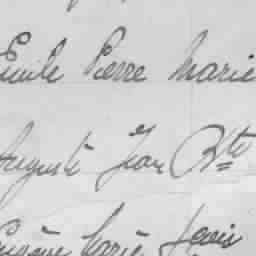 Emile Pierre Marie
Auguste Jean Bte
Eugène Marie Louis